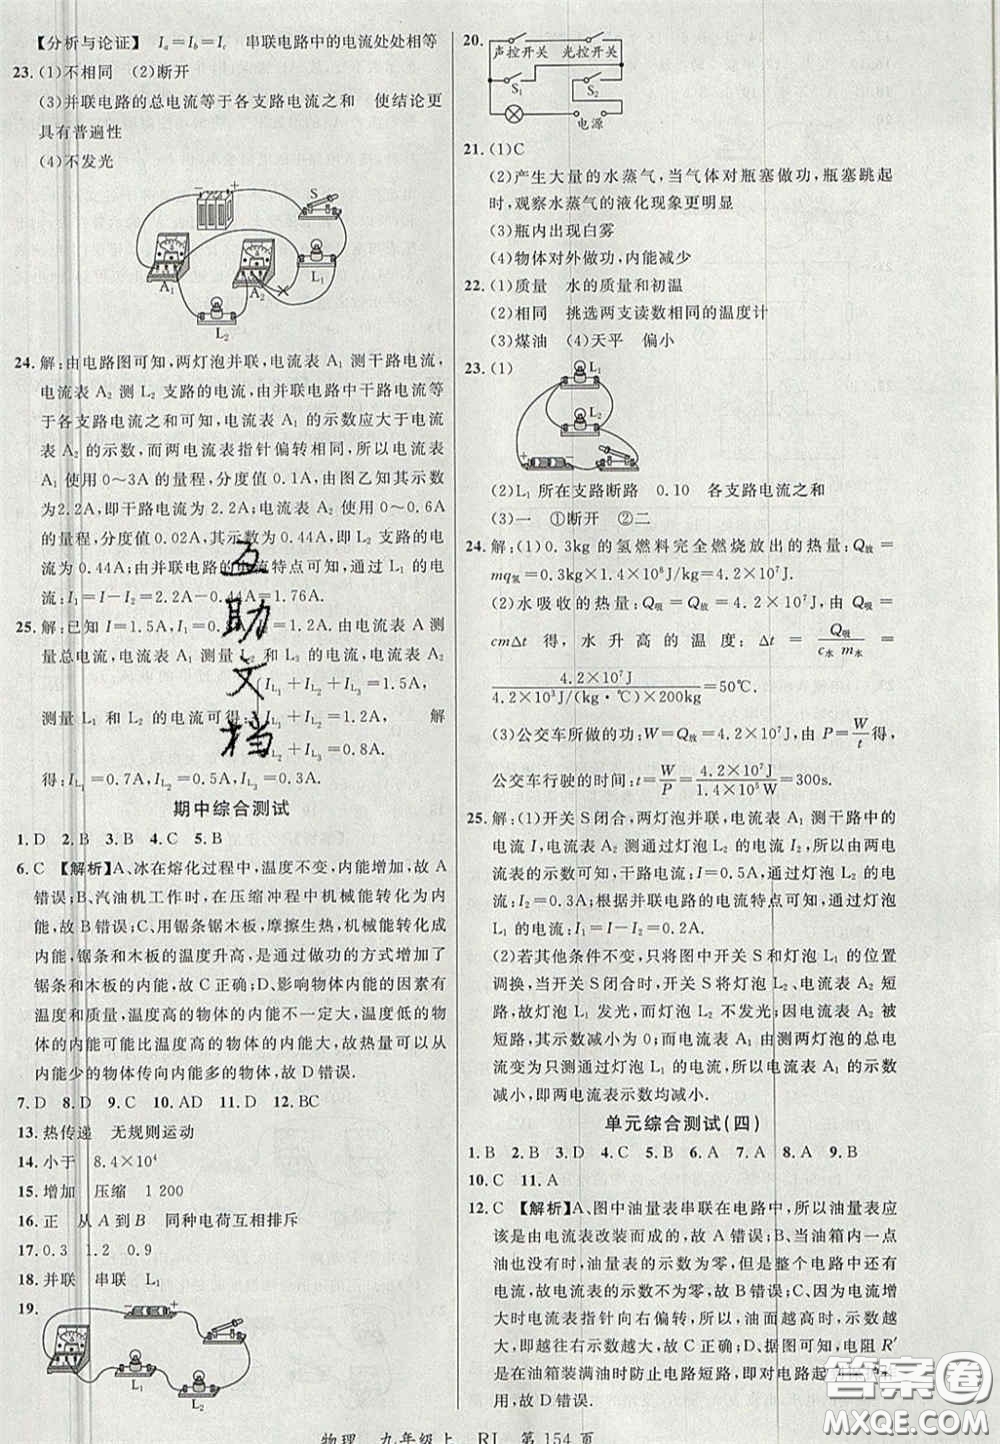 【分析与论证】 Iₐ=I_b=I_c 串联电路中的电流处处相等
23. (1)不相同 (2)断开
(3)并联电路的总电流等于各支路电流之和 使结论更
具有普遍性
(4)不发光
S
A₁
A₂
L₁
L₂
24. 解:由电路图可知,两灯泡并联,电流表 A₁ 测干路电流,
电流表 A₂ 测 L₂ 支路的电流,由并联电路中干路电流等
于各支路电流之和可知,电流表 A₁ 的示数应大于电流
表 A₂ 的示数,而两电流表指针偏转相同,所以电流表
A₁ 使用 0~3A 的量程,分度值 0.1A,由图乙知其示数
为2.2A,即干路电流为 2.2A;电流表 A₂ 使用 0~0.6A
的量程,分度值 0.02A,其示数为 0.44A,即 L₂ 支路的电
流为 0.44A;根据并联电路的电流特点可知,通过 L₁ 的电
流:I₁=I−I₂=2.2A−0.44A=1.76A.
25. 解:已知 I=1.5A,I₁= =1.2A.由电流表 A 测
量总电流,电流表 A₁ 测量 L₂ 和 L₃ 的电流,电流表 A₂
I_L₁+I_L₂+I_L₃=1.5A,
测量 L₁ 和 L₂ 的电流可得: I_L₁+I_L₂=1.2A, 解
I_L₂+I_L₃=0.8A.
得:I_L₁=0.7A,I_L₂=0.5A,I_L₃=0.3A.
期中综合测试
1. D 2. B 3. B 4. C 5. B
6. C 【解析】A、冰在熔化过程中,温度不变,内能增加,故 A
错误;B、汽油机工作时,在压缩冲程中机械能转化为内
能,故 B 错误;C、用锯条锯木板,摩擦生热,机械能转化成内
能,锯条和木板的温度升高,是通过做功的方式增加了
锯条和木板的内能,故 C 正确;D、影响物体内能的因素有
温度和质量,温度高的物体的内能不一定大,故温度低的物
体的内能可能比温度高的物体的内能大,故热量可以从
内能少的物体传向内能多的物体,故 D 错误.
7. D 8. D 9. C 10. AD 11. D 12. BC
13. 热传递 无规则运动
14. 小于 8.4×10⁴
15. 增加 压缩 1 200
16. 正 从 A 到 B 同种电荷互相排斥
17. 0.3 1.2 0.9
18. 并联 串联 L₁
19.
L₁
L₂
20.
声控开关 光控开关
S₁ S₂
电源
21. (1)C
(2)产生大量的水蒸气,当气体对瓶塞做功,瓶塞跳起
时,观察水蒸气的液化现象更明显
(3)瓶内出现白雾
(4)物体对外做功,内能减少
22. (1)质量 水的质量和初温
(2)相同 挑选两支读数相同的温度计
(3)煤油 (4)天平 偏小
23. (1)
L₁
L₂
(2)L₁ 所在支路断路 0.10 各支路电流之和
(3)一 ①断开 ②二
24. 解:(1)0.3kg 的氢燃料完全燃烧放出的热量:Q放=
mq氢=0.3kg×1.4×10⁸J/kg=4.2×10⁷J.
(2)水吸收的热量:Q吸=Q放=4.2×10⁷J,由 Q吸=
cmΔt 得,水升高的温度:Δt=Q吸/(c水 m水)=
4.2×10⁷J/(4.2×10³J/(kg·℃)×200kg)=50℃.
(3)公交车所做的功:W=Q放=4.2×10⁷J,由 P=W/t得,
公交车行驶的时间:t=W/P=4.2×10⁷J/1.4×10⁵W=300s.
25. 解:(1)开关 S闭合,两灯泡并联,电流表 A₁ 测干路中的
电流 I,电流表 A₂ 测通过灯泡 L₂ 的电流,由两电流
表的示数可知,干路电流:I=0.5A,通过灯泡 L₂ 的电
流:I₂=0.3A;根据并联电路的电流特点可知,通过灯泡
L₁ 的电流:I₁=I−I₂=0.2A.
(2)若其他条件不变,只将图中开关 S 和灯泡 L₂ 的位置
调换,当开关 S闭合时,开关 S将灯泡 L₂、电流表 A₂ 短
路,故灯泡 L₁ 发光,而灯泡 L₂ 不发光;电流表 A₂ 被
短路,故示数减小为 0;而电流表 A₁ 由测两灯泡的总电
流变为只测灯泡 L₁ 的电流,所以电流表 A₁ 的示数
减小,即两电流表示数均减小.
单元综合测试(四)
1. B 2. D 3. C 4. B 5. C 6. A 7. A 8. A 9. B
10. C 11. A
12. C 【解析】A、图中油量表串联在电路中,所以油量表应
该是由电流表改装而成的,故 A 错误;B、当油箱内一点
油也没有时,油量表的示数为零,但整个电路中还有
电流,故电流表的示数不为零,故 B 错误;C、因为电流增
大时电流表指针向右偏转,所以,油面越高时,示数越
大,即越往右示数越大,故 C 正确;D、据图可知,电阻 R′
是在油箱装满油时防止电路短路,即对电路起
用,故 D 错误.
互助文档
答案卷
物理 九年级上 RJ 第 154 页